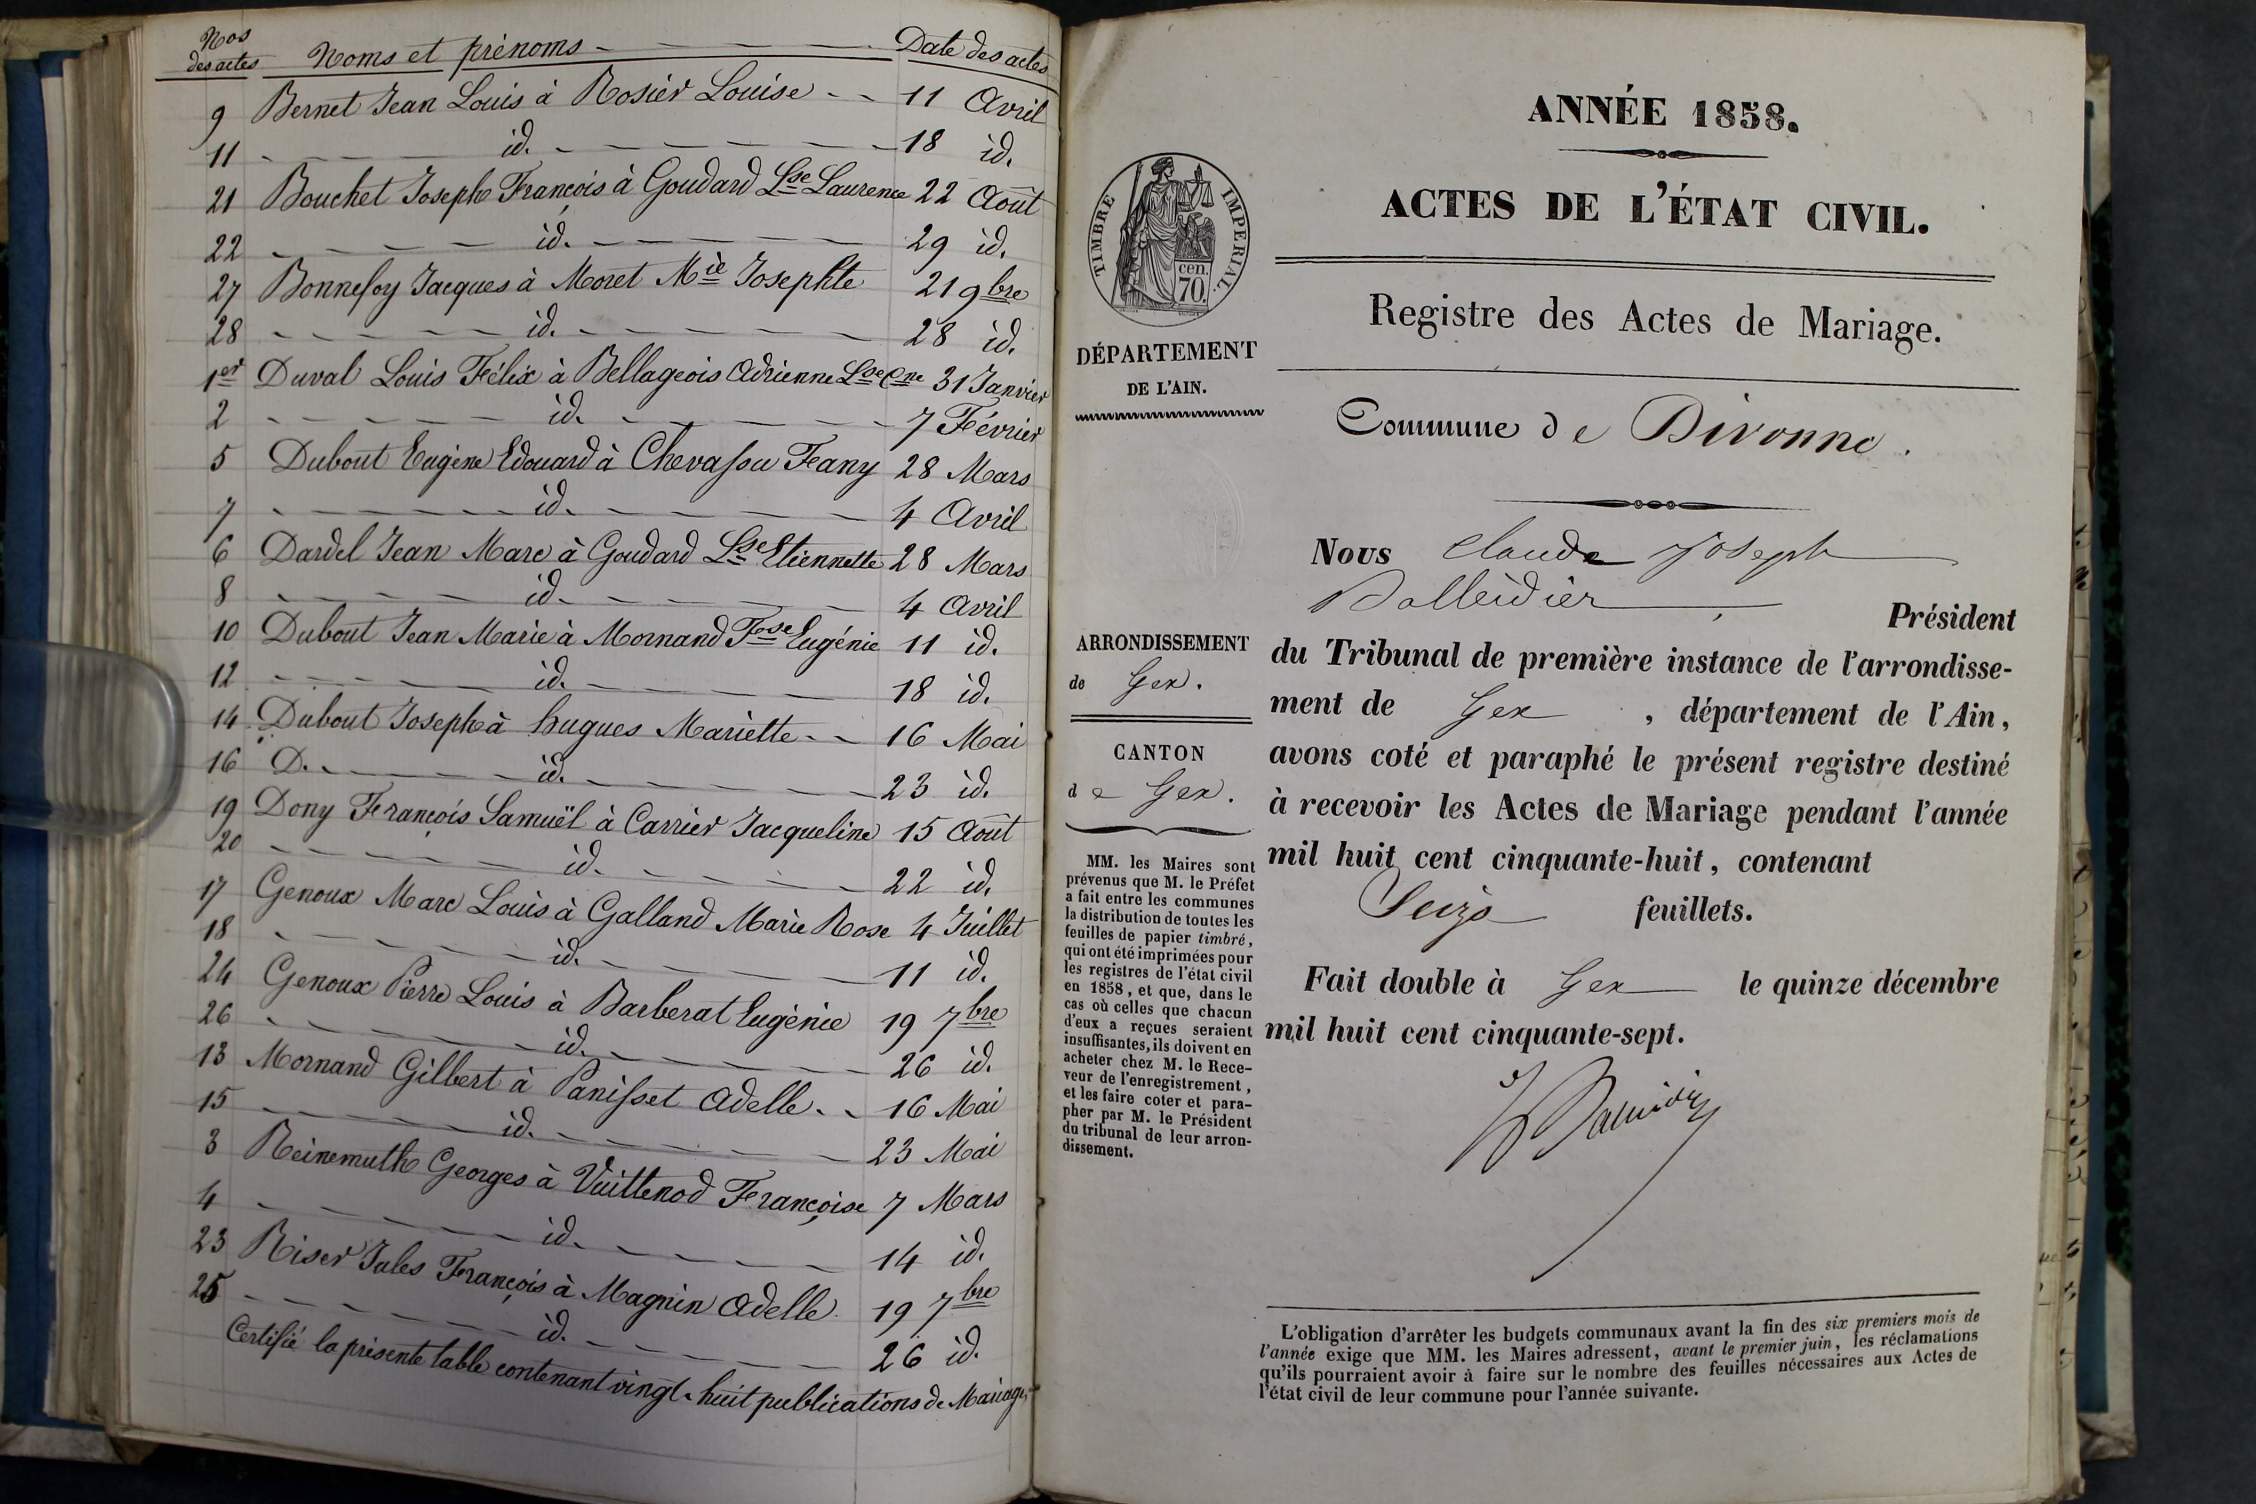 Nos
des actes Noms et prénoms Date des actes
9 Bernet Jean Louis à Rosier Louise 11 Avril
11 id. 18 id.
21 Bouchet Joseph François à Goudard Lse Laurence 22 Août
22 id. 29 id.
27 Bonnefoy Jacques à Moret Mie Josephte 21 9bre
28 id. 28 id.
1er Duval Louis Félix à Bellageois Adrienne Lse Cne 31 Janvier
2 id. 7 Février
5 Dubout Eugène Edouard à Chevassu Fany 28 Mars
7 id. 4 Avril
6 Dardel Jean Marc à Goudard Lse Etiennette 28 Mars
8 id. 4 Avril
10 Dubout Jean Marie à Mornand Fse Eugénie 11 id.
12 id. 18 id.
14 Dubout Joseph à hugues Mariette 16 Mai
16 D. id. 23 id.
19 Dony François Samuël à Carrier Jacqueline 15 Août
20 id. 22 id.
17 Genoux Marc Louis à Galland Marie Rose 4 Juillet
18 id. 11 id.
24 Genoux Pierre Louis à Barberat Eugénie 19 7bre
26 id. 26 id.
13 Mornand Gilbert à Panisset Adelle 16 Mai
15 id. 23 Mai
3 Reinemuth Georges à Vuittenod Françoise 7 Mars
4 id. 14 id.
23 Riser Jules François à Magnin Adelle 19 7bre
25 id. 26 id.
Certifié la présente table contenant vingt-huit publications de Mariage,
ANNÉE 1858.
ACTES DE L'ÉTAT CIVIL.
TIMBRE IMPERIAL.
cen.
70.
Registre des Actes de Mariage.
DÉPARTEMENT
DE L'AIN.
Commune de Divonne.
Nous Claude Joseph
Président
du Tribunal de première instance de l'arrondisse-
ment de Gex, département de l'Ain,
avons coté et paraphé le présent registre destiné
à recevoir les Actes de Mariage pendant l'année
mil huit cent cinquante-huit, contenant
Seize feuillets.
Fait double à Gex le quinze décembre
mil huit cent cinquante-sept.
ARRONDISSEMENT
de Gex.
CANTON
de Gex.
MM. les Maires sont
prévenus que M. le Préfet
a fait entre les communes
la distribution de toutes les
feuilles de papier timbré,
qui ont été imprimées pour
les registres de l'état civil
en 1858, et que, dans le
cas où celles que chacun
d'eux a reçues seraient
insuffisantes, ils doivent en
acheter chez M. le Rece-
veur de l'enregistrement,
et les faire coter et para-
pher par M. le Président
du tribunal de leur arron-
dissement.
L'obligation d'arrêter les budgets communaux avant la fin des six premiers mois de
l'année exige que MM. les Maires adressent, avant le premier juin, les réclamations
qu'ils pourraient avoir à faire sur le nombre des feuilles nécessaires aux Actes de
l'état civil de leur commune pour l'année suivante.